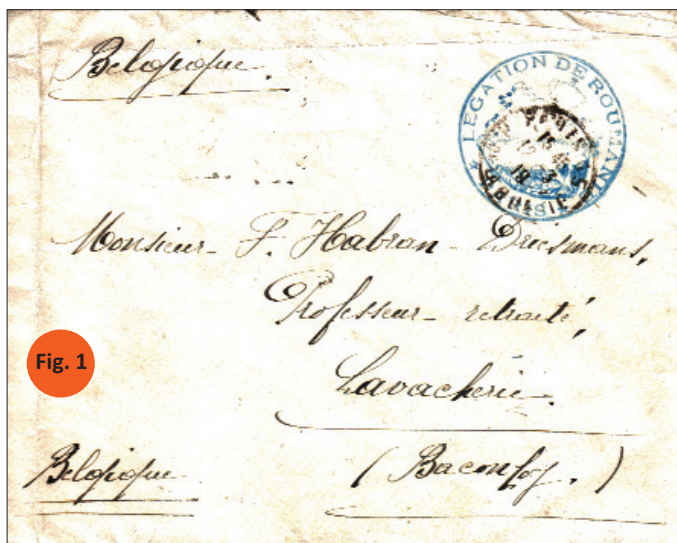 Belgique.
LEGATION DE ROUMANIE
Monsieur - F. Habran - Driesmans,
Professeur - retraité,
Fig. 1
Lavacherie.
Belgique
( Baconfoy. )